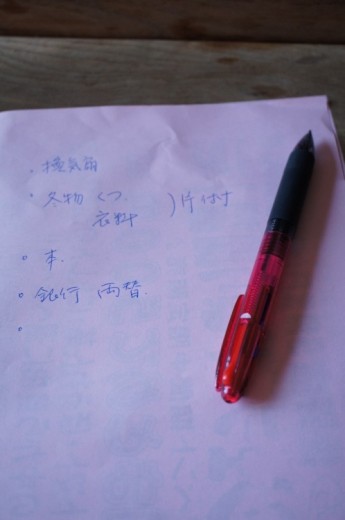 ・換気扇
・冬物 くつ )片付
衣料
。本.
。銀行 両替.
。